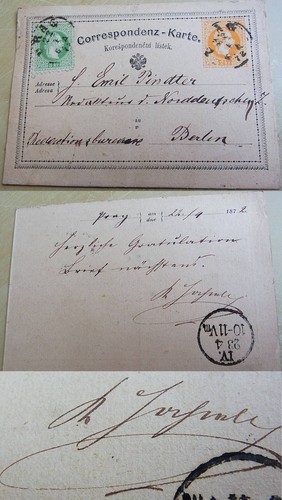 Correspondenz-Karte.
Korespondenční lístek.
Adresse
Adresa
H. Emil Pindter
Redakteur d. Norddeutschen
Redactionsbureau
Berlin
Prag am dne 22/4 1872
Herzliche Gratulation
Brief nächstens.
IV.
23 4
10-11 Vm